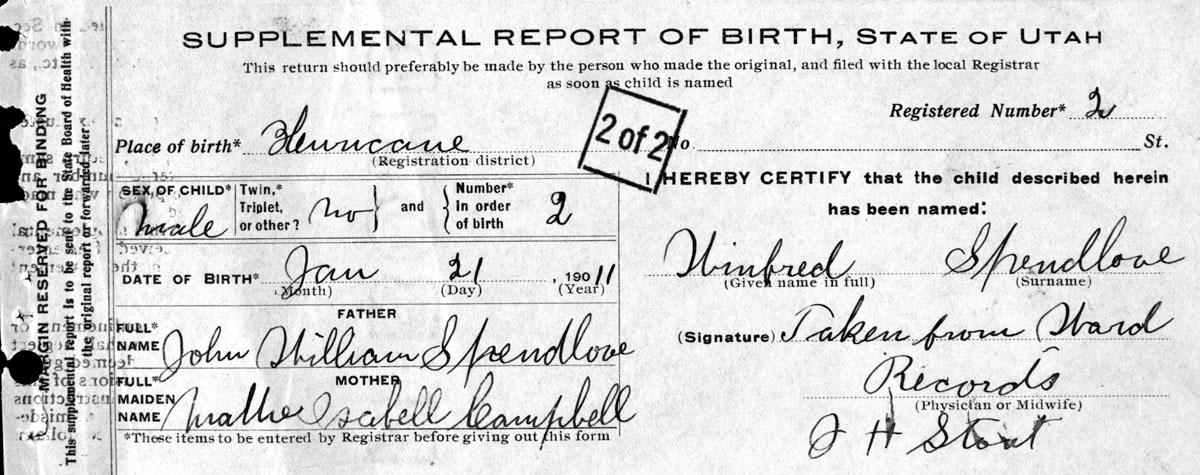 SUPPLEMENTAL REPORT OF BIRTH, STATE OF UTAH
This return should preferably be made by the person who made the original, and filed with the local Registrar
as soon as child is named
Registered Number* 2
2 of 2
Place of birth* Hurricane No. St.
(Registration district)
SEX OF CHILD* Male
Twin,*
Triplet,
or other? No
and
Number*
In order
of birth 2
DATE OF BIRTH* Jan 21, 190 11
(Month) (Day) (Year)
FATHER
FULL*
NAME John William Spendlove
MOTHER
FULL*
MAIDEN
NAME Isabell Campbell
*These items to be entered by Registrar before giving out this form
I HEREBY CERTIFY that the child described herein
has been named:
Winfred Spendlove
(Given name in full) (Surname)
(Signature) Taken from Ward
Records
(Physician or Midwife)
J H Stout
MARGIN RESERVED FOR BINDING
This supplemental report is to be sent to the State Board of Health with
the original report or forwarded later